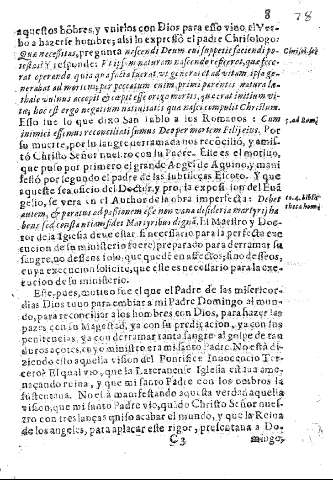 8
78
aquestos hõbres, y vnirlos con Dios para esso vino el Ver-
bo a hazerse hombre; assi lo expressò el padre Chrisologo:
Que necessitas, pregunta nascendi Deum cui suppetit faciendi po-
testas? Y responde:
rat operando
nerabat ad mortem; per peccatum enim primi parentis natura le-
thale vulnus accepit & cæpit esse origo mortis, quæ erat initium vi-
tæ; hoc est ergo nascendi compulit Christum.
Esso fue lo que dixo San Pablo a los Romanos: Cum
inimici essemus reconciliati sumus Deo per mortem Filij eius. Por
su muerte, por su sangre derramada nos reconciliò, y amis-
tò Christo Señor nuestro con su Padre. Este es el motiuo,
que puso por primero el grande Angel de Aquino, y mani
festò por segundo el padre de las subtilezas Escoto. Y que
aqueste sea oficio del Doctor, y pro, la exposicion del Euã
gelio, se vera en el Author de la obra imperfecta: Debet
autem, & paratus ad passionem esse non vana desideria martyrij ha
bens sed constantiam Martyribus dignã. El Maestro y Doc-
tor de la Iglesia deue estar (si necessario para la perfecta exe
cucion de su ministerio fuere) preparado para derramar su
sangre, no desseos solo, que quede en afectos; sino desseos,
cuya execucion solicite, que este es necessario para la exe-
cucion de su ministerio.
Este, pues, motiuo fue el que el Padre de las misericor-
dias Dios tuuo para embiar a mi Padre Domingo al mun-
do, para reconciliar a los hombres con Dios, para hazer las
pazes con su Magestad, ya con su predicacion, ya con sus
penitencias, ya con derramar tanta sangre al golpe de tan
duros açotes, cuyo ministro era mi santo Padre. No està di-
ziendo esto aquella vision del Pontifice Innocencio Ter-
cero? El qual vio, que la Lateranense Iglesia estaua ame-
naçando ruina, y que mi santo Padre con los ombros la
sustentaua. No està manifestando aquesta verdad aquella
vision, que mi santo Padre vio, quãdo Christo Señor nues-
tro con tres lanças quiso acabar el mundo, y que la Reina
de los angeles, para aplacar este rigor, presentaua a Do-
C3 mingo,
ad Rom.